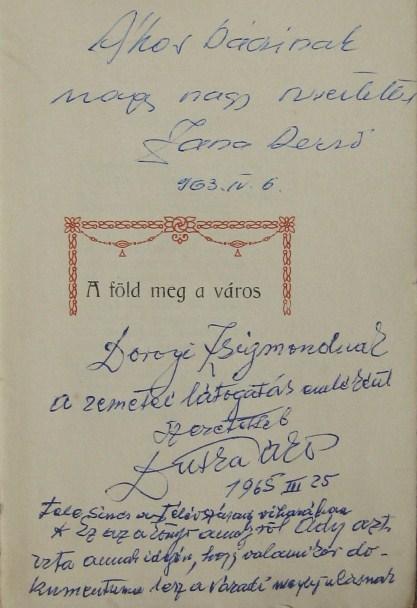 Ákos bácsinak
nagy nagy szeretettel
Jana Dezső
963. IV. 6.
A föld meg a város
Dorogi Zsigmondnak
a remetei látogatás emlékéül
szeretettel
Dutka Ákos
1965 III 25
Ez az a könyv amelyről Ady azt
írta annak idején, hogy valamikor do-
kumentuma lesz a váradi megujulásnak